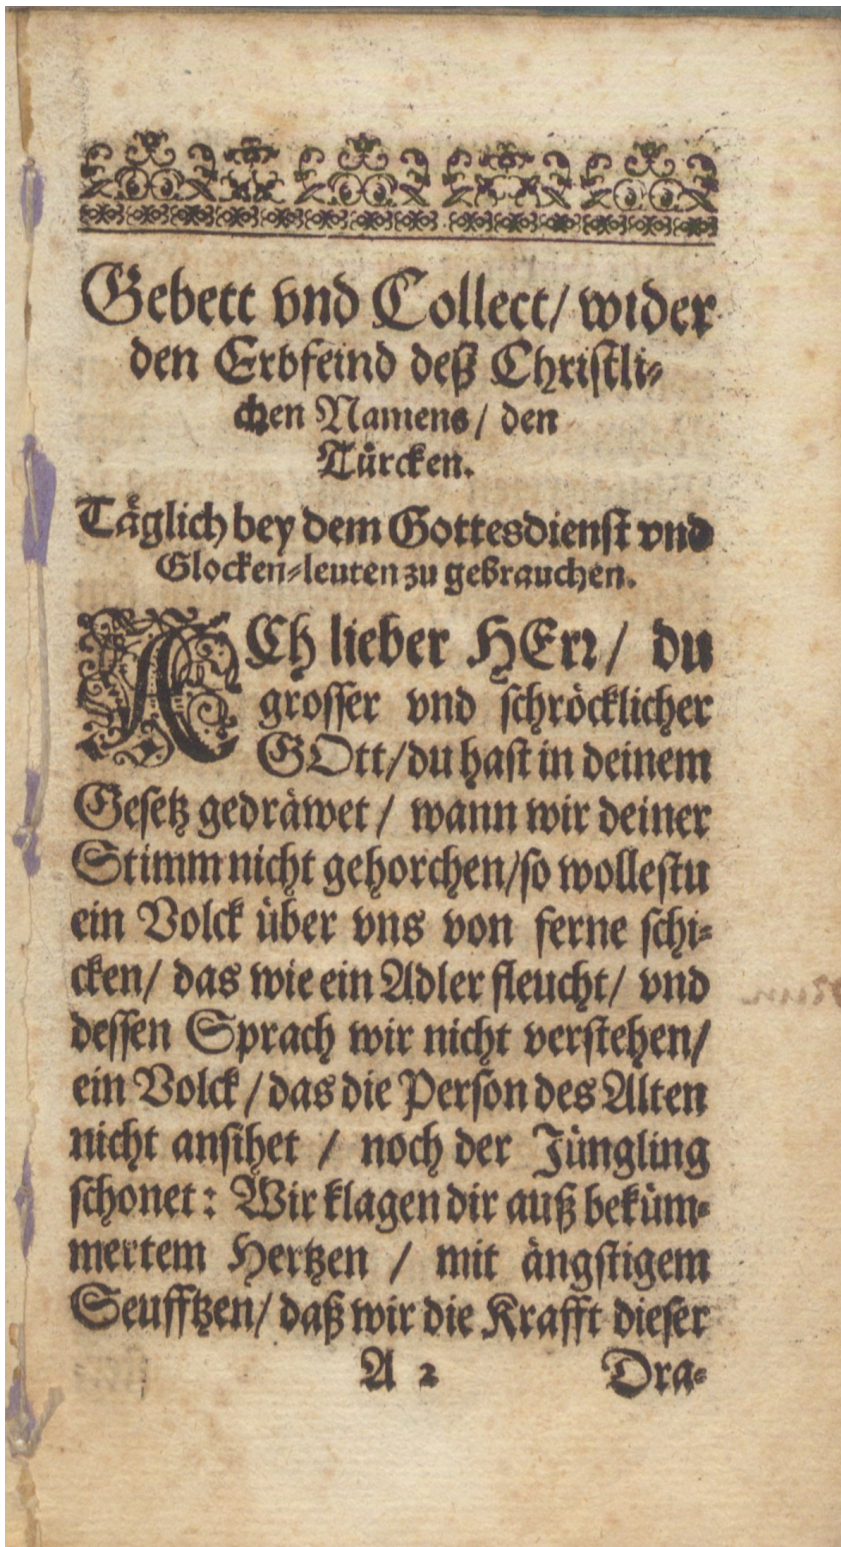 Gebett vnd Collect/ wider
den Erbfeind deß Christli-
chen Namens/ den
Türcken.
Täglich bey dem Gottesdienst vnd
Glocken-leuten zu gebrauchen.
ACh lieber HErr/ du
grosser vnd schröcklicher
GOtt/ du hast in deinem
Gesetz gedräwet/ wann wir deiner
Stimm nicht gehorchen/ so wollestu
ein Volck über vns von ferne schi-
cken/ das wie ein Adler fleucht/ vnd
dessen Sprach wir nicht verstehen/
ein Volck/ das die Person des Alten
nicht ansihet / noch der Jüngling
schonet: Wir klagen dir auß beküm-
mertem Hertzen / mit ängstigem
Seufftzen/ daß wir die Krafft dieser
A 2 Dra-